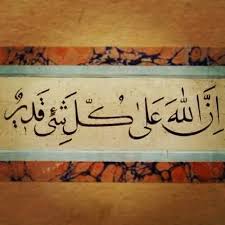 اِنَّ اللّٰهَ عَلٰى كُلِّ شَيْئٍ قَدٖيرٌ